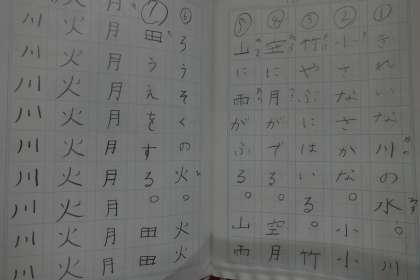 ① きれいな川の水。川
② 小さなさかな。小小
③ 竹やぶにはいる。竹
④ 空に月がでる。空月
⑤ 山に雨がふる。山雨
⑥ ろうそくの火。火火
⑦ 田うえをする。田田
月月月月月月月月月月
火火火火火火火火火
川川川川川川川川川